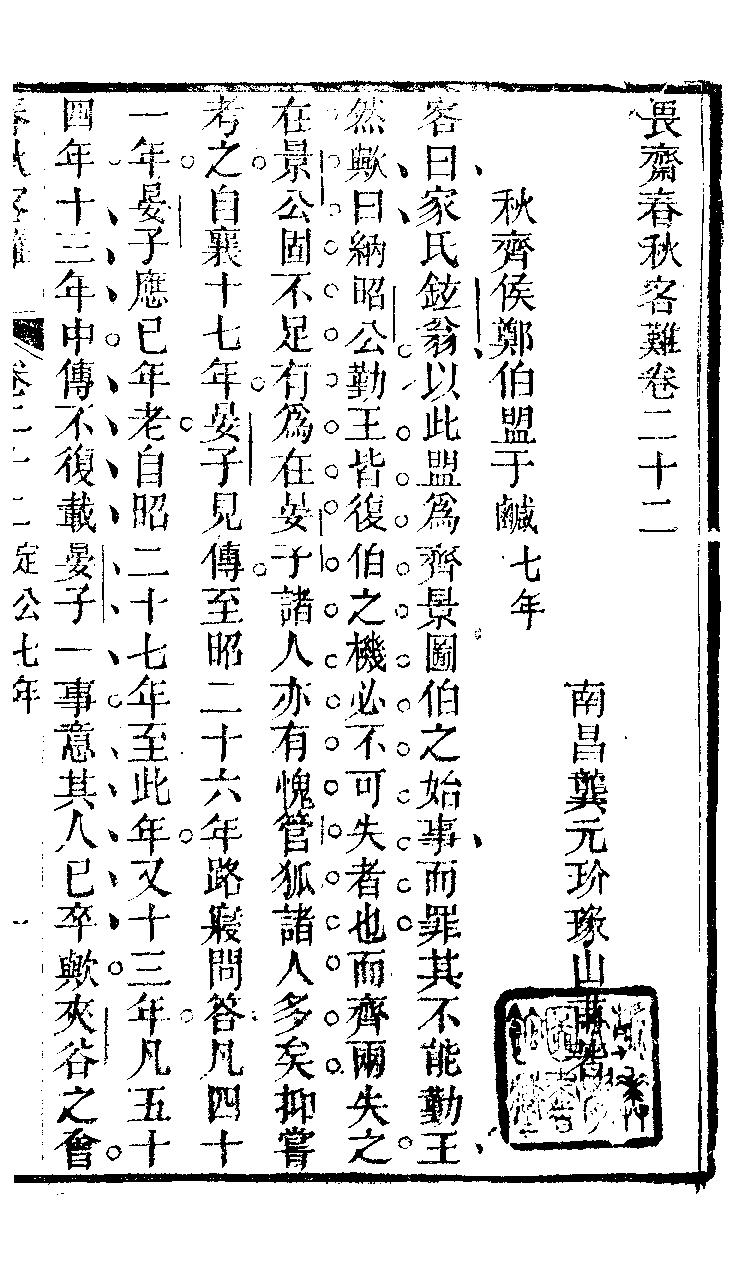 畏齋春秋客難卷二十二
南昌龔元玠瑑山甫著
秋齊侯鄭伯盟于鹹七年
客曰家氏鉉翁以此盟爲齊景圖伯之始事而罪其不能勤王
然歟曰納昭公勤王皆復伯之機必不可失者也而齊兩失之
在景公固不足有爲在晏子諸人亦有愧管狐諸人多矣抑嘗
考之自襄十七年晏子見傳至昭二十六年路寢問答凡四十
一年晏子應已年老自昭二十七年至此年又十三年凡五十
四年十三年中傳不復載晏子一事意其人已卒歟夾谷之會
春秋客難 卷二十二 定公七年 一